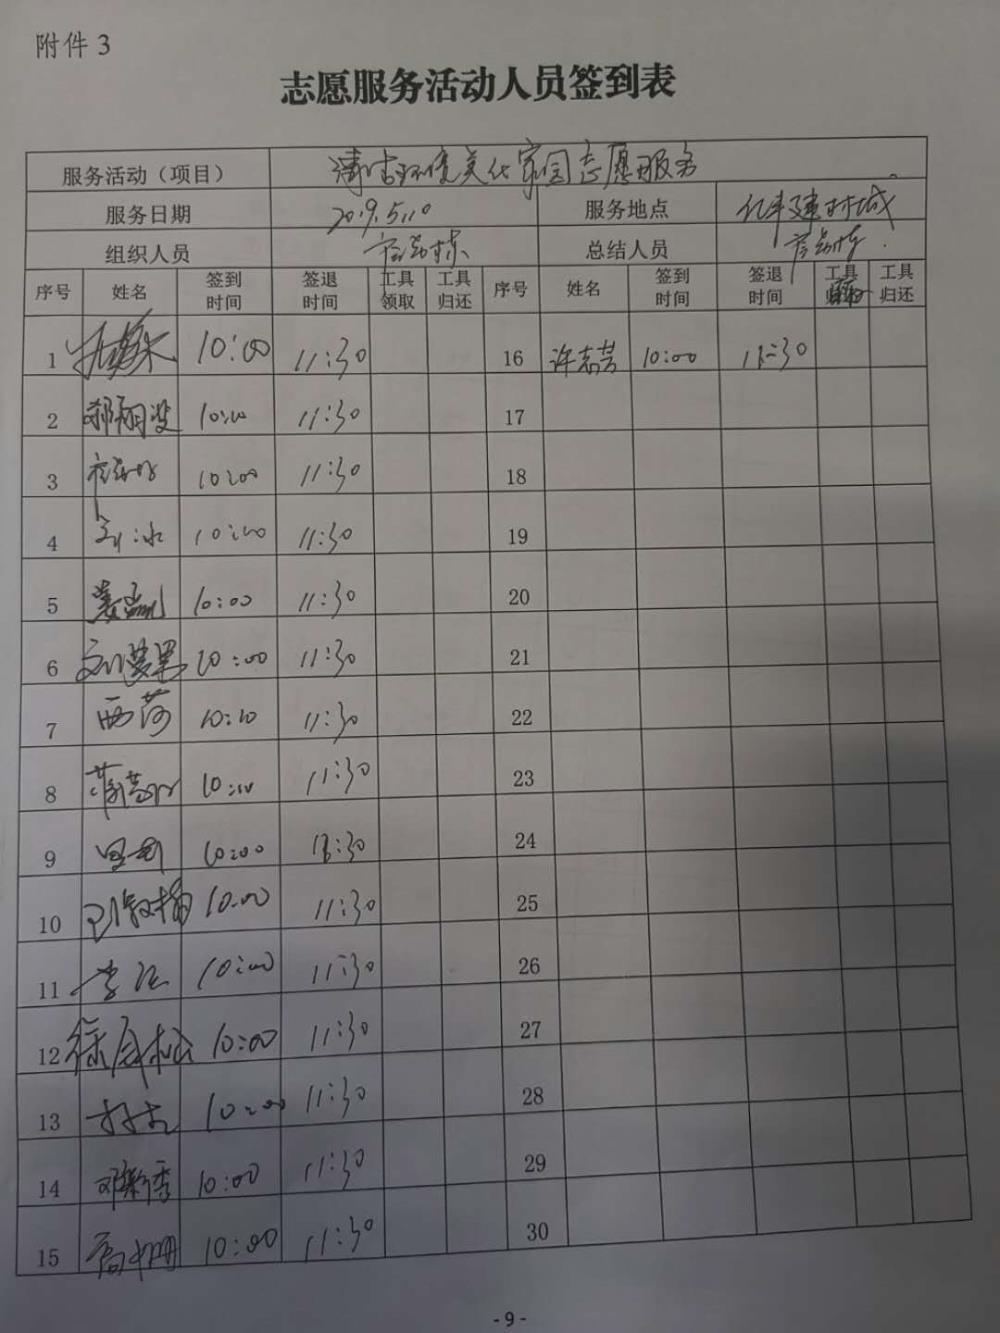 附件 3
志愿服务活动人员签到表
服务活动（项目） 清洁环境美化家园志愿服务
服务日期 2019.5.10 服务地点 亿丰建材城
组织人员 总结人员
序号 姓名 签到时间 签退时间 工具领取 工具归还 序号 姓名 签到时间 签退时间 工具 工具归还
1 10:00 11:30 16 许志芸 10:00 11:30
2 10:00 11:30 17
3 10:00 11:30 18
4 刘冰 10:00 11:30 19
5 10:00 11:30 20
6 刘梦果 10:00 11:30 21
7 西荷 10:10 11:30 22
8 10:10 11:30 23
9 10:00 11:30 24
10 10:00 11:30 25
11 10:00 11:30 26
12 10:00 11:30 27
13 10:00 11:30 28
14 邓新秀 10:00 11:30 29
15 10:00 11:30 30
- 9 -